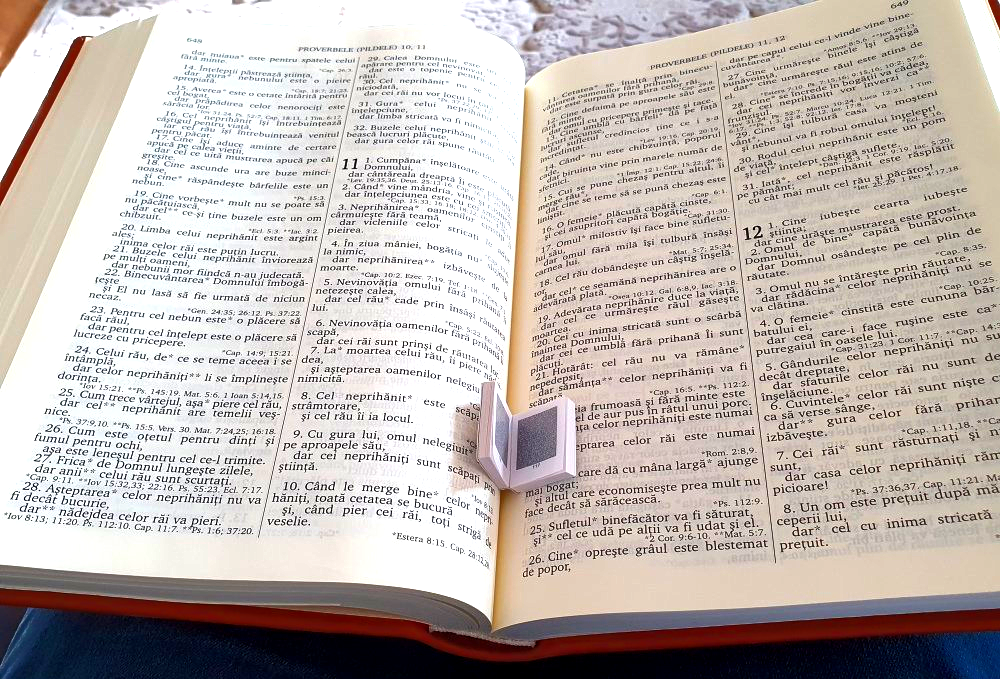 648
PROVERBELE (PILDELE) 10, 11
dar nuiaua* este pentru spatele celui
fără minte.
*Cap. 26:3.
14. Înţelepţii păstrează ştiinţa,
dar gura* nebunului este o pieire
apropiată.
*Cap. 18:7; 21:23.
15. Averea* este o cetate întărită pentru
cel bogat,
dar prăpădirea celor nenorociţi este
sărăcia lor.
16. Cel neprihănit îşi întrebuinţează
câştigul pentru viaţă,
iar cel rău îşi întrebuinţează venitul
pentru păcat.
17. Cine îşi aduce aminte de certare
apucă pe calea vieţii,
dar cel ce uită mustrarea apucă pe căi
greşite.
18. Cine ascunde ura are buze minci-
noase,
şi cine* răspândeşte bârfelile este un
nebun.
*Ps. 15:3.
19. Cine vorbeşte* mult nu se poate să
nu păcătuiască,
dar cel** ce-şi ţine buzele este un om
chibzuit.
*Ecl. 5:3. **Iac. 3:2.
20. Limba celui neprihănit este argint
ales;
inima celor răi este puţin lucru.
21. Buzele celui neprihănit înviorează
pe mulţi oameni,
dar nebunii mor fiindcă n-au judecată.
22. Binecuvântarea* Domnului îmbogă-
ţeşte
şi El nu lasă să fie urmată de niciun
necaz.
*Gen. 24:35; 26:12. Ps. 37:22.
23. Pentru cel nebun este* o plăcere să
facă răul,
dar pentru cel înţelept este o plăcere să
lucreze cu pricepere.
*Cap. 14:9; 15:21.
24. Celui rău, de* ce se teme aceea i se
întâmplă,
dar celor neprihăniţi** li se împlineşte
dorinţa.
*Iov 15:21. **Ps. 145:19. Mat. 5:6. 1 Ioan 5:14,15.
25. Cum trece vârtejul, aşa* piere cel rău,
dar cel** neprihănit are temelii veş-
nice.
*Ps. 37:9,10. **Ps. 15:5. Vers. 30. Mat. 7:24,25; 16:18.
26. Cum este oţetul pentru dinţi şi
fumul pentru ochi,
aşa este leneşul pentru cel ce-l trimite.
27. Frica* de Domnul lungeşte zilele,
dar anii** celui rău sunt scurtaţi.
*Cap. 9:11. **Iov 15:32,33; 22:16. Ps. 55:23. Ecl. 7:17.
28. Aşteptarea* celor neprihăniţi nu va
fi decât bucurie,
dar** nădejdea celor răi va pieri.
*Iov 8:13; 11:20. Ps. 112:10. Cap. 11:7. **Ps. 1:6; 37:20.
29. Calea Domnului este
apărare pentru cel neprihănit,
dar este o topenie pentru
răul.
30. Cel neprihănit* nu
niciodată,
dar cei răi nu vor locui în
31. Gura* celui
înţelepciune,
dar limba stricată va fi
32. Buzele celui neprihănit
bească lucruri plăcute,
dar gura celor răi spune
11 1. Cumpăna* înşelătoare
Domnului,
dar cântăreala dreaptă Îi este
2. Când* vine mândria,
dar înţelepciunea este cu
3. Neprihănirea* oamenilor
cârmuieşte fără teamă,
dar vicleniile celor stricaţi
pieirea.
4. În ziua mâniei, bogăţia nu-
la nimic,
dar neprihănirea** izbăveşte
moarte.
*Cap. 10:2. Ezec. 7:19. Ţef. 1:18.
5. Nevinovăţia omului fără prihană
netezeşte calea,
dar cel rău* cade prin însăşi răutatea
lui.
*Cap. 5:22.
6. Nevinovăţia oamenilor fără prihană
scapă,
dar cei răi sunt prinşi de răutatea lor.
7. La* moartea celui rău, îi piere
dea,
şi aşteptarea oamenilor nelegiuiţi
nimicită.
8. Cel neprihănit* este scăpat
strâmtorare,
şi cel rău îi ia locul.
9. Cu gura lui, omul nelegiuit*
pe aproapele său,
dar cei neprihăniţi sunt scăpaţi prin
ştiinţă.
10. Când le merge bine* celor
hăniţi, toată cetatea se bucură
şi, când pier cei răi, toţi strigă de
veselie.
*Estera 8:15. Cap. 28:12,28
649
PROVERBELE (PILDELE) 11, 12
11. Cetatea* se înalţă prin binecu-
vântarea oamenilor fără prihană,
dar este surpată prin gura celor răi.
12. Cine
dar omul cu pricepere primeşte şi tace.
13. Cine umblă cu bârfeli* dă pe faţă
lucruri ascunse,
dar sufletul credincios ţine ce i s-a
încredinţat.
14. Când* nu este chibzuinţă, poporul
cade,
dar biruinţa vine prin marele număr de
sfetnici.
*1 Împ. 12:1. Cap. 15:22; 24:6.
15. Cui se pune chezaş pentru altul, îi
merge rău,
dar cine se teme să se pună chezaş este
liniştit.
*Cap. 6:1.
16. O femeie* plăcută capătă cinste,
şi cei asupritori capătă bogăţie.
*Cap. 31:30.
17. Omul* milostiv îşi face bine sufletu-
lui,
dar omul fără milă îşi tulbură însăşi
carnea lui.
*Mat. 5:7; 25:34.
18. Cel rău dobândeşte un câştig înşelă-
tor,
dar cel* ce seamănă neprihănirea are o
adevărată plată.
*Osea 10:12. Gal. 6:8,9. Iac. 3:18.
19. Adevărata neprihănire duce la viaţă,
dar cel ce urmăreşte răul găseşte
moartea.
20. Cei cu inima stricată sunt o scârbă
înaintea Domnului,
dar cei ce umblă fără prihană Îi sunt
plăcuţi.
21. Hotărât: cel rău nu va rămâne*
nepedepsit,
dar sămânţa** celor neprihăniţi va fi
scăpată.
*Cap. 16:5. **Ps. 112:2.
frumoasă şi fără minte este
de aur pus în râtul unui porc.
celor neprihăniţi este numai
aşteptarea celor răi este numai
*Rom. 2:8,9.
care dă cu mâna largă* ajunge
mai bogat;
şi altul care economiseşte prea mult nu
face decât să sărăcească.
*Ps. 112:9.
25. Sufletul* binefăcător va fi săturat,
şi** cel ce udă pe alţii va fi udat şi el.
*2 Cor. 9:6-10. **Mat. 5:7.
26. Cine* opreşte grâul este blestemat
de popor,
dar pe capul celui ce-l vinde vine bine-
cuvântarea*.
*Amos 8:5,6. **Iov 29:13.
27. Cine urmăreşte binele îşi câştigă
bunăvoinţă,
dar* cine urmăreşte răul este atins de
el.
28. Cine* se încrede în bogăţii va cădea,
dar cei neprihăniţi vor înverzi ca**
frunzişul.
29. Cine îşi tulbură casa va moşteni
vânt,
şi nebunul va fi robul omului înţelept.
30. Rodul celui neprihănit este un pom
de viaţă,
şi cel* înţelept câştigă suflete.
31. Iată*, cel neprihănit este răsplătit
pe pământ;
cu cât mai mult cel rău şi păcătos!
*Ier. 25:29. 1 Pet. 4:17,18.
12 1. Cine iubeşte certarea iubeşte
ştiinţa;
dar cine urăşte mustrarea este prost.
2. Omul de bine* capătă bunăvoinţa
Domnului,
dar Domnul osândeşte pe cel plin de
răutate.
*Cap. 8:35.
3. Omul nu se întăreşte prin răutate,
dar rădăcina* celor neprihăniţi nu se
va clătina.
*Cap. 10:25.
4. O femeie* cinstită este cununa băr-
batului ei,
dar cea care-i face ruşine este ca**
putregaiul în oasele lui.
*Cap. 31:23. 1 Cor. 11:7. **Cap. 14:
5. Gândurile celor neprihăniţi nu sunt
decât dreptate,
dar sfaturile celor răi nu sunt decât
înşelăciune.
6. Cuvintele* celor răi sunt nişte
ca să verse sânge,
dar** gura celor fără prihană
izbăveşte.
*Cap. 1:11,18.
7. Cei răi* sunt răsturnaţi şi nu
sunt,
dar casa celor neprihăniţi rămâne
picioare!
*Ps. 37:36,37. Cap. 11:21.
8. Un om este preţuit după
ceperii lui,
dar* cel cu inima stricată
preţuit.